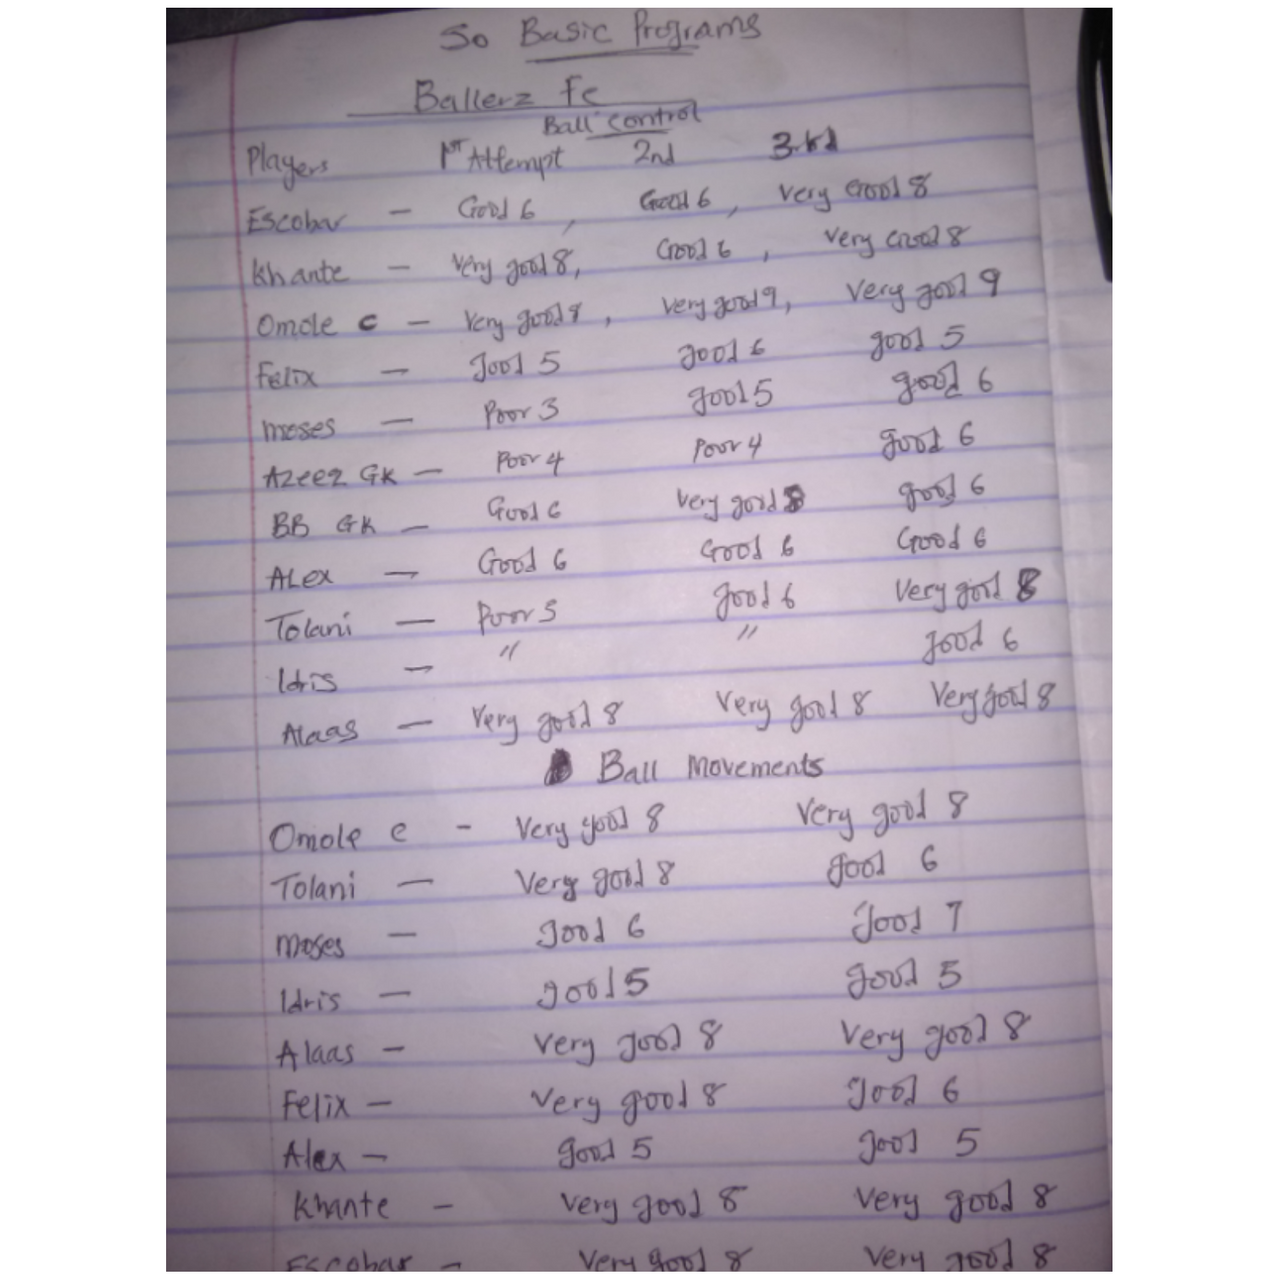 So Basic Programs
Ballerz Fc
Ball control
Players 1st Attempt 2nd 3rd
Escobar - Good 6, Good 6, Very Good 8
Khante - Very good 8, Good 6, Very Good 8
Omole c - Very good 8, very good 9, Very good 9
Felix - good 5 good 6 good 5
moses - Poor 3 good 5 good 6
Azeez GK - Poor 4 Poor 4 good 6
BB GK - Good 6 Very good 8 good 6
ALex - Good 6 Good 6 Good 6
Tolani - Poor 5 good 6 Very good 8
Idris - " " good 6
Alaas - Very good 8 Very good 8 Very good 8
Ball Movements
Omole c - Very good 8 Very good 8
Tolani - Very good 8 good 6
moses - good 6 good 7
Idris - good 5 good 5
Alaas - Very good 8 Very good 8
Felix - Very good 8 good 6
Alex - good 5 good 5
Khante - Very good 8 Very good 8
Escobar - Very good 8 Very good 8